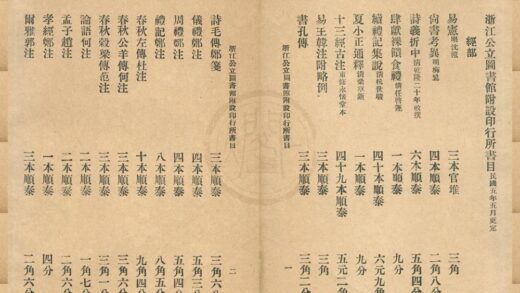 浙江公立圖書館附設印行所書目 民國五年五月更定
經部
易憲 明沈泓 三本官堆 三角
尙書考異 明梅鷟 四本順泰 二角八分
詩義折中 清乾隆二十年敕撰 六本順泰 五角四分
肆獻祼饋食禮 清任啓運 一本順泰 九分
續禮記集說 清杭世駿 四十本順泰 六元九角
夏小正通釋 一本順泰 九分
十三經古注 重修永懷堂本 四十九本順泰 五元二角
易王韓注附略例 三本順泰 二角
書孔傳 三本順泰 三角二分
浙江公立圖書館附設印行所書目 一
浙江公立圖書館附設印行所書目 二
詩毛傳鄭箋 三本順泰 三角六
儀禮鄭注 四本順泰 五角三
周禮鄭注 四本順泰 五角四
禮記鄭注 八本順泰 八角五
春秋左傳杜注 十本順泰 九角四
春秋公羊傳何注 三本順泰 三角六
春秋穀梁傳范注 三本順泰 三角一
論語何注 二本順泰 一角七
孟子趙注 二本順泰 二角六
孝經鄭注 一本順泰 四分
爾雅郭注 三本順泰 二角六分